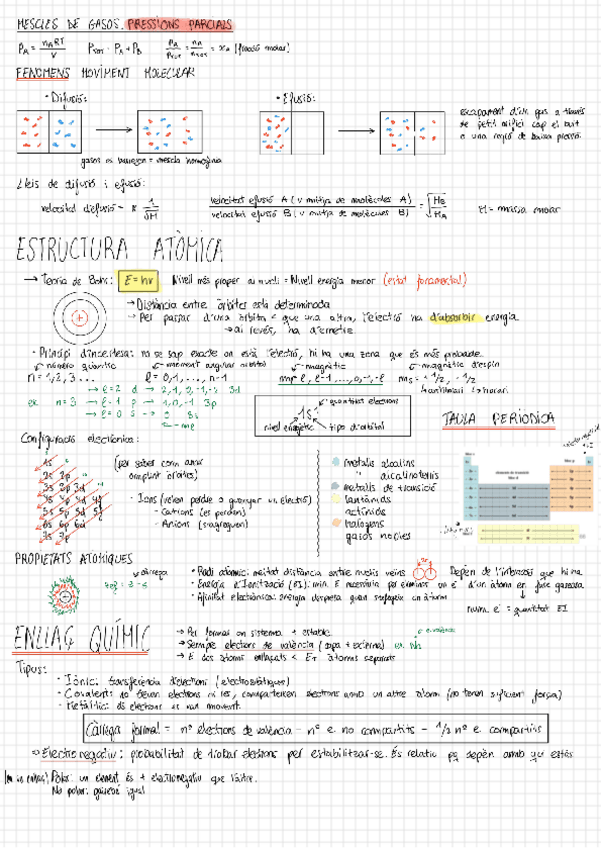 MESCLES DE GASOS. PRESSIONS PARCIALS
PA = nART / V   PTOT = PA + PB   PA / PTOT = nA / nTOT = xA (fracció molar)
FENÒMENS MOVIMENT MOLECULAR
· Difusió:   · Efusió:
escapament d'un gas a través
de petit orifici cap el buit
o una regió de baixa pressió.
gasos es barregen = mescla homogènia
Lleis de difusió i efusió:
velocitat d'efusió = 1 / √M   velocitat efusió A (v mitja de molècules A) / velocitat efusió B (v mitja de molècules B) = √ MB / MA   M = massa molar
ESTRUCTURA ATÒMICA
→ Teoria de Bohr: E = hν Nivell més proper al nucli = Nivell energia menor (estat fonamental)
→ Distància entre òrbites està determinada
→ Per passar d'una òrbita a una altra, l'electró ha d'absorbir energia
→ al revés, ha d'emetre.
· Principi d'incertesa: no se sap exacte on està l'electró, hi ha una zona que és més probable.
número quàntic   moment angular orbital   magnètic   magnètic d'espín
n = 1, 2, 3 ...   ℓ = 0, 1, ..., n-1   mℓ = ℓ, ℓ-1, ..., 0, -1, -ℓ   ms = 1/2, -1/2
→ ℓ = 2 d → 2, 1, 0, -1, -2 3d
ex. n = 3 → ℓ = 1 p → 1, 0, -1 3p
→ ℓ = 0 s → 0 3s
quantitat electrons
1s
nivell energètic   tipo d'orbital
TAULA PERIÒDICA
Configuració electrònica:
1s
2s 2p
3s 3p 3d
4s 4p 4d 4f
5s 5p 5d 5f
6s 6p 6d
7s 7p
(per saber com anar
omplint òrbites)
· Ions (volen perdre o guanyar un electró)
- Cations (es perden)
- Anions (s'agreguen)
metalls alcalins
" alcalinoterris
metalls de transició
lantànids
actínids
halògens
gasos nobles
PROPIETATS ATÒMIQUES
càrrega
· Radi atòmic: meitat distància entre nuclis veïns
· Energia d'Ionització (EI): mín. E necessària per eliminar un e- d'un àtom en fase gasosa
· Afinitat electrònica: energia despresa quan s'afegeix un àtom
num. e- = quantitat EI
ENLLAÇ QUÍMIC
→ Per formar un sistema + estable.
→ Sempre electrons de valència (capa + externa)
→ E dos àtoms enllaçats < ET àtoms separats
Tipus:
· Iònic: transferència d'electrons (electrostàtiques)
· Covalent: no donen electrons ni res, comparteixen electrons amb un altre àtom (no tenen suficient força)
· Metàl·lic: els electrons es van movent.
Càrrega formal = nº electrons de valència - nº e- no compartits - 1/2 nº e- compartits
Electronegatiu: probabilitat de trobar electrons per estabilitzar-se. És relatiu pq depèn amb qui estès
Polar: un element és + electronegatiu que l'altre.
No polar: gairebé igual